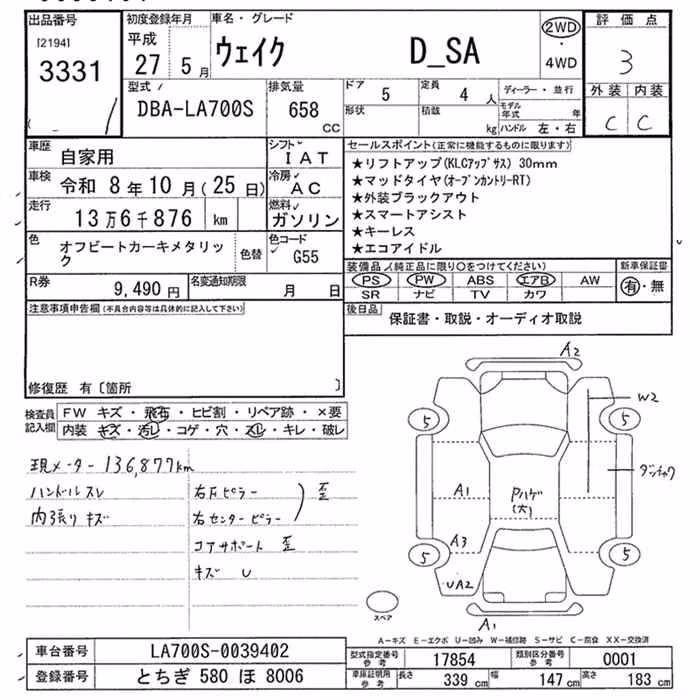 出品番号
[2194]
3331
初度登録年月
平成
27 5月
車名・グレード
ウェイク D_SA
2WD
・
4WD
評価点
3
外装 内装
C C
型式
DBA-LA700S
排気量
658
CC
ドア 5
定員 4 人
形状
積載 kg
ディーラー・並行
モデル年式 年
ハンドル 左・右
車歴 自家用
シフト IAT
車検 令和 8年10月(25日)
冷房 AC
走行 13万6千876 km
燃料 ガソリン
色 オフビートカーキメタリック
色替
色コード G55
R券 9,490円
名変通知期限 月 日
セールスポイント(正常に機能するものに限ります)
★リフトアップ(KLCアップサス) 30mm
★マッドタイヤ(オープンカントリーRT)
★外装ブラックアウト
★スマートアシスト
★キーレス
★エコアイドル
装備品(純正品に限り○をつけてください)
新車保証書
PS PW ABS エアB AW
SR ナビ TV カワ
有・無
後日品 保証書・取説・オーディオ取説
注意事項申告欄(不具合内容等は具体的に記入して下さい)
修復歴 有〔箇所 〕
検査員記入欄
FW キズ・飛石・ヒビ割・リペア跡・×要
内装 キズ・汚レ・コゲ・穴・スレ・キレ・破レ
現メーター 136,877km
ハンドルスレ
内張りキズ
右Fピラー
右センターピラー
歪
コアサポート 歪
キズ U
A2
W2
5 5
ダッシャク
A1
Pハゲ
(大)
A3
5 5
UA2
A1
スペア
A-キズ E-エクボ U-凹み W-補修跡 S-サビ C-腐食 XX-交換済
車台番号 LA700S-0039402
登録番号 とちぎ 580 ほ 8006
型式指定番号参考 17854
類別区分番号参考 0001
車庫証明用参考 長さ 339 cm 幅 147 cm 高さ 183 cm